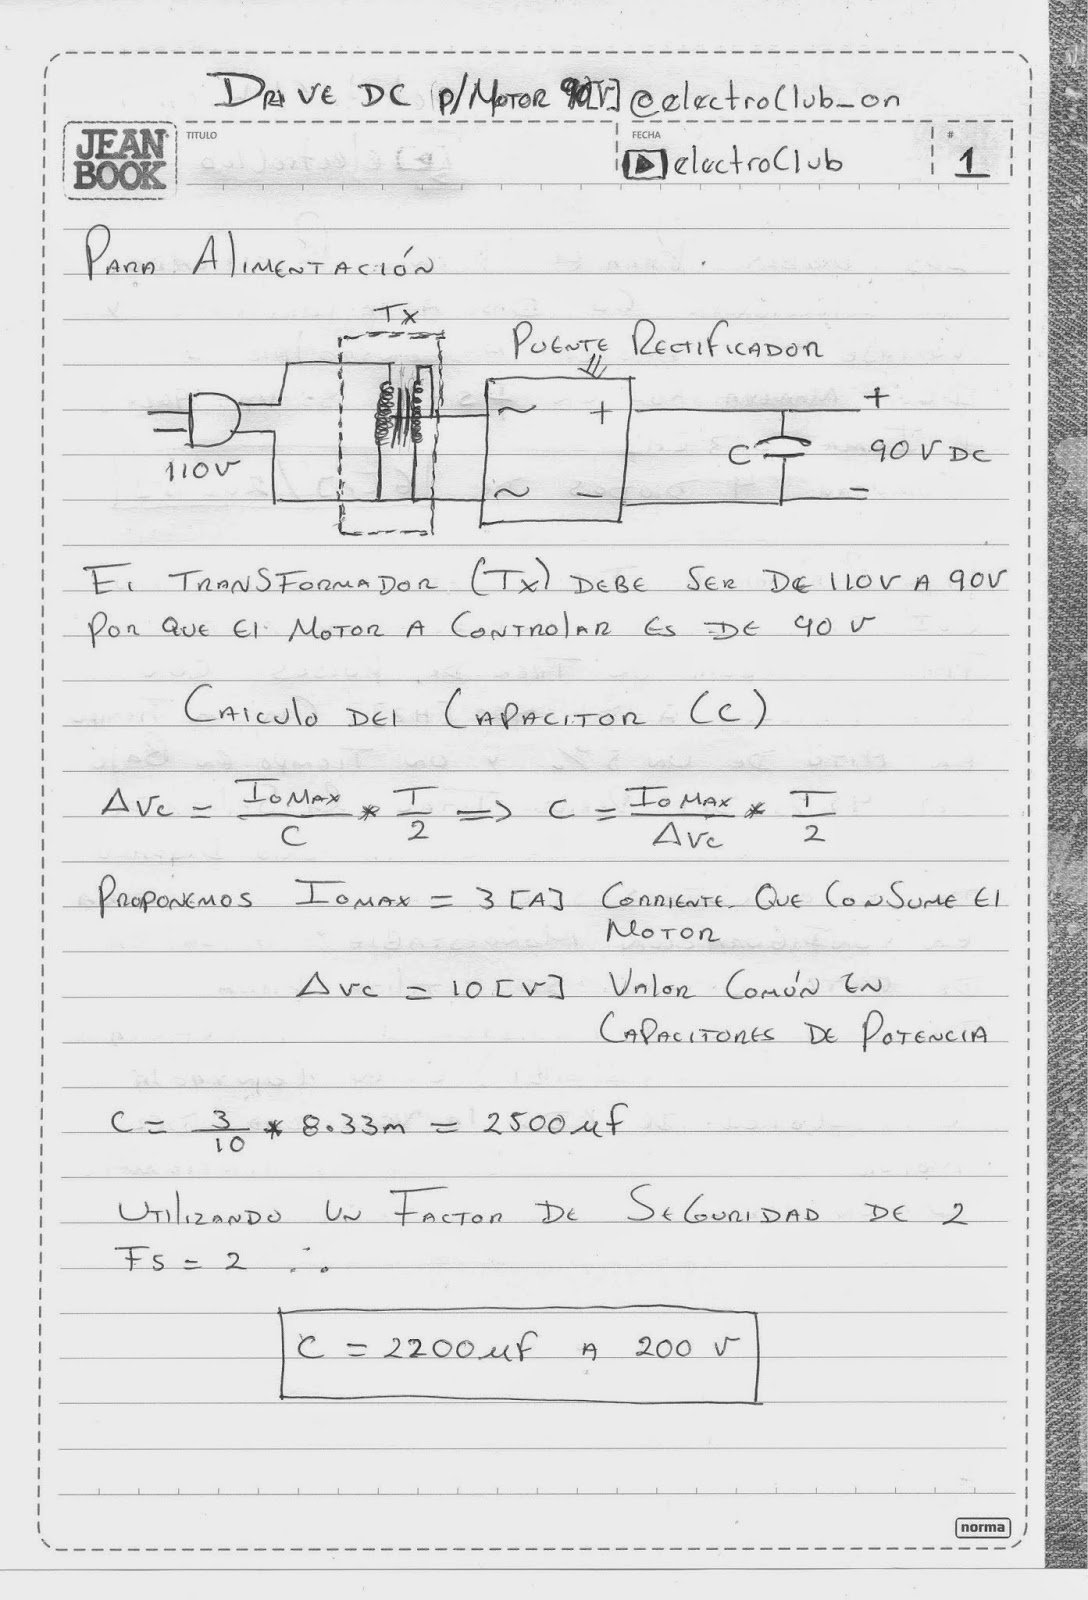 DRIVE DC p/MOTOR 90[V] @electroClub_on
JEAN BOOK
TITULO
FECHA
electroClub
#
1
PARA ALIMENTACIÓN
Tx
PUENTE RECTIFICADOR
110V
~ +
~ -
C
+
90V DC
-
El TRANSFORMADOR (Tx) DEBE SER DE 110V A 90V
POR QUE El MOTOR A CONTROLAR ES DE 90 V
CALCULO DEL CAPACITOR (C)
ΔVc = IoMAX/C * T/2 => C = IoMAX/ΔVc * T/2
PROPONEMOS IoMAX = 3 [A] CORRIENTE QUE CONSUME El
MOTOR
ΔVc = 10 [V] VALOR COMÚN EN
CAPACITORES DE POTENCIA
C = 3/10 * 8.33m = 2500 µf
UTILIZANDO UN FACTOR DE SEGURIDAD DE 2
FS = 2 ∴
C = 2200 µf A 200 V
norma